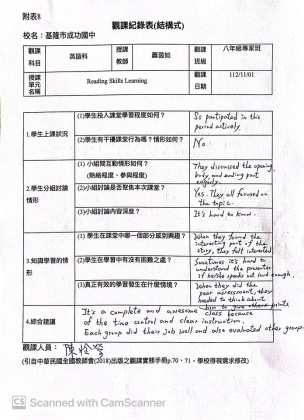 附表8
觀課紀錄表(結構式)
校名：基隆市成功國中
觀課科目
英語科
授課教師
蕭茵如
觀課班級
八年級專家班
授課單元名稱
Reading Skills Learning
觀課日期
112/11/01
1.學生上課狀況
(1)學生投入課堂學習程度如何？
So partipated in this
period actively.
(2)學生有干擾課堂行為嗎？情形如何？
No
2.學生分組討論情形
(1) 小組間互動情形如何？
(熱絡程度、參與程度)
They discussed the opening,
body, and ending part
eagerly.
(2)小組討論是否聚焦本次課堂？
Yes. They all focused on
the topic.
(3)小組討論內容深度？
It's hard to know.
3.知識學習的情形
(1) 學生在課堂中哪一個部分感到興趣？
When they found the
interesting part of the
story, they felt interested.
(2)學生在學習中有沒有困難之處？
Sometimes it's hard to
understand the presenter
if he/she spoke not loud enough.
(3)真正有效的學習發生在什麼情境？
When they did the
peer assessment, they
needed to think about
how to give others points.
4.綜合建議
It's a complete and awesome class because
of the time control and clear instruction.
Each group did their job well and also evaluated other group
觀課人員：
(引自中華民國全國教師會(2018)出版之觀課實務手冊p.70、71，學校得視需求修改)
CS Scanned with CamScanner